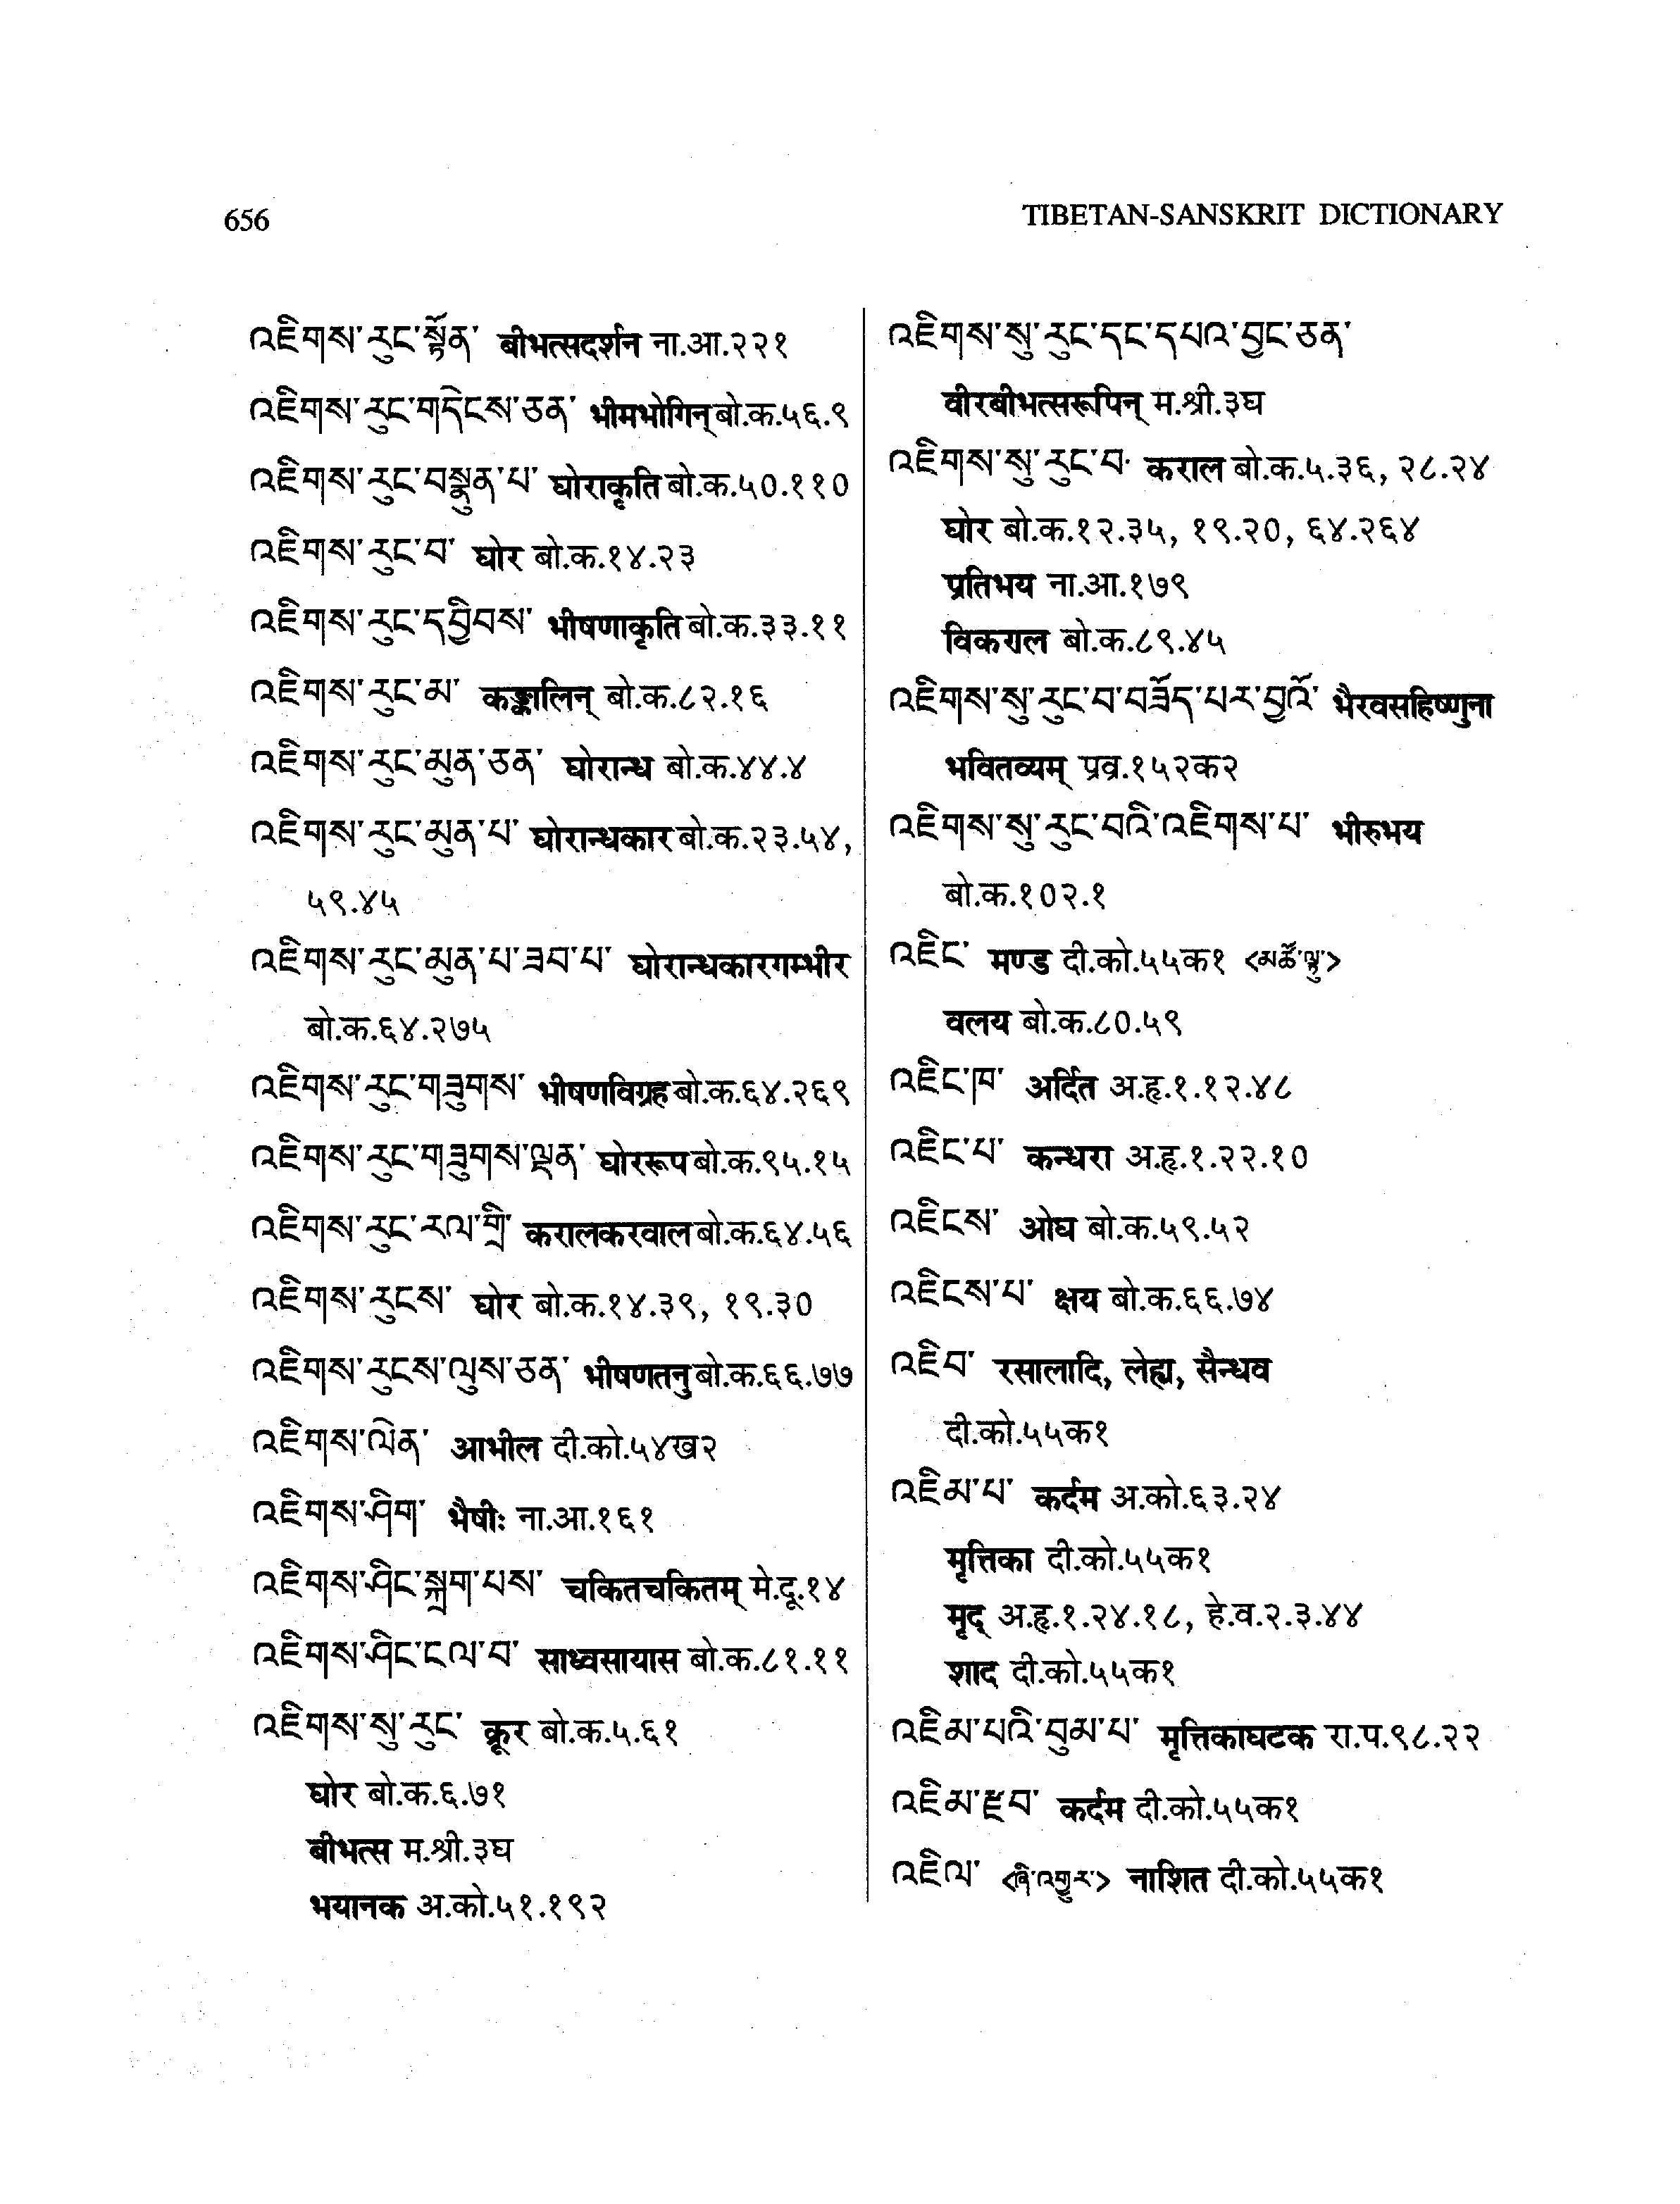 656
TIBETAN-SANSKRIT DICTIONARY
འཇིགས་རུང་སྟོན་ बीभत्सदर्शन ना.आ.२२१
འཇིགས་རུང་གདེངས་ཅན་ भीमभोगिन् बो.क.५६.९
འཇིགས་རུང་བསྣུན་པ་ घोराकृति बो.क.५०.११०
འཇིགས་རུང་བ་ घोर बो.क.१४.२३
འཇིགས་རུང་དབྱིབས་ भीषणाकृति बो.क.३३.११
འཇིགས་རུང་མ་ कङ्कालिन् बो.क.८२.१६
འཇིགས་རུང་མུན་ཅན་ घोरान्ध बो.क.४४.४
འཇིགས་རུང་མུན་པ་ घोरान्धकार बो.क.२३.५४,
५९.४५
འཇིགས་རུང་མུན་པ་ཟབ་པ་ घोरान्धकारगम्भीर
बो.क.६४.२७५
འཇིགས་རུང་གཟུགས་ भीषणविग्रह बो.क.६४.२६९
འཇིགས་རུང་གཟུགས་ལྡན་ घोररूप बो.क.९५.१५
འཇིགས་རུང་རལ་གྲི་ करालकरवाल बो.क.६४.५६
འཇིགས་རུངས་ घोर बो.क.१४.३९, १९.३०
འཇིགས་རུངས་ལུས་ཅན་ भीषणतनु बो.क.६६.७७
འཇིགས་ལེན་ आभील दी.को.५४ख२
འཇིགས་ཤིག་ भैषीः ना.आ.१६१
འཇིགས་ཤིང་སྐྲག་པས་ चकितचकितम् मे.दू.१४
འཇིགས་ཤིང་ངལ་བ་ साध्वसायास बो.क.८१.११
འཇིགས་སུ་རུང་ क्रूर बो.क.५.६१
घोर बो.क.६.७१
बीभत्स म.श्री.३घ
भयानक अ.को.५१.१९२
འཇིགས་སུ་རུང་དང་དཔའ་བྱང་ཅན་
वीरबीभत्सरूपिन् म.श्री.३घ
འཇིགས་སུ་རུང་བ་ कराल बो.क.५.३६, २८.२४
घोर बो.क.१२.३५, १९.२०, ६४.२६४
प्रतिभय ना.आ.१७९
विकराल बो.क.८९.४५
འཇིགས་སུ་རུང་བ་བཟོད་པར་བྱའོ་ भैरवसहिष्णुना
भवितव्यम् प्रव्र.१५२क२
འཇིགས་སུ་རུང་བའི་འཇིགས་པ་ भीरुभय
बो.क.१०२.१
འཇིང་ मण्ड दी.को.५५क१ <མཚོ་ལྟ་བུ་>
वलय बो.क.८०.५९
འཇིང་ཁ་ अर्दित अ.हृ.१.१२.४८
འཇིང་པ་ कन्धरा अ.हृ.१.२२.१०
འཇིངས་ ओघ बो.क.५९.५२
འཇིངས་པ་ क्षय बो.क.६६.७४
འཇིབ་ रसालादि, लेह्य, सैन्धव
दी.को.५५क१
འཇིམ་པ་ कर्दम अ.को.६३.२४
मृत्तिका दी.को.५५क१
मृद् अ.हृ.१.२४.१८, हे.व.२.३.४४
शाद दी.को.५५क१
འཇིམ་པའི་བུམ་པ་ मृत्तिकाघटक रा.प.९८.२२
འཇིམ་རྫབ་ कर्दम दी.को.५५क१
འཇིལ་ <ཞི་འགྱུར་> नाशित दी.को.५५क१